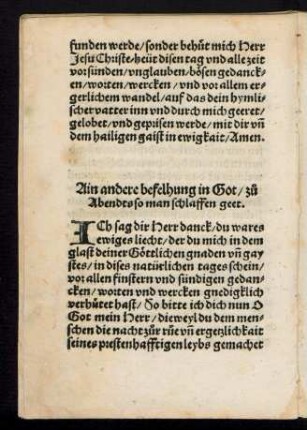 funden werde/sonder behüt mich Herr
Jesu Christe/heüt disen tag vnd alle zeit
vor sünden/vnglauben/bösen gedanck-
en/worten/wercken/vnd vor allem er-
gerlichem wandel/auf das dein hymli-
scher vatter inn vnd durch mich geeret/
gelobet/vnd gepriſen werde/mit dir vñ
dem hailigen gaist in ewigkait/Amen.
Ain andere befelhung in Got/zů
Abendts so man schlaffen geet.
ICh sag dir Herr danck/du wares
ewiges liecht/der du mich in dem
glast deiner Göttlichen gnaden vñ gay
stes/in dises natürlichen tages schein/
vor allen finstern vnd sündigen gedan-
cken/worten vnd wercken gnedigklich
verhütet hast/So bitte ich dich nun O
Got mein Herr/dieweyl du dem men-
schen die nacht zůr růe vñ ergetzlichkait
seines prestenhafftigen leybs gemachet